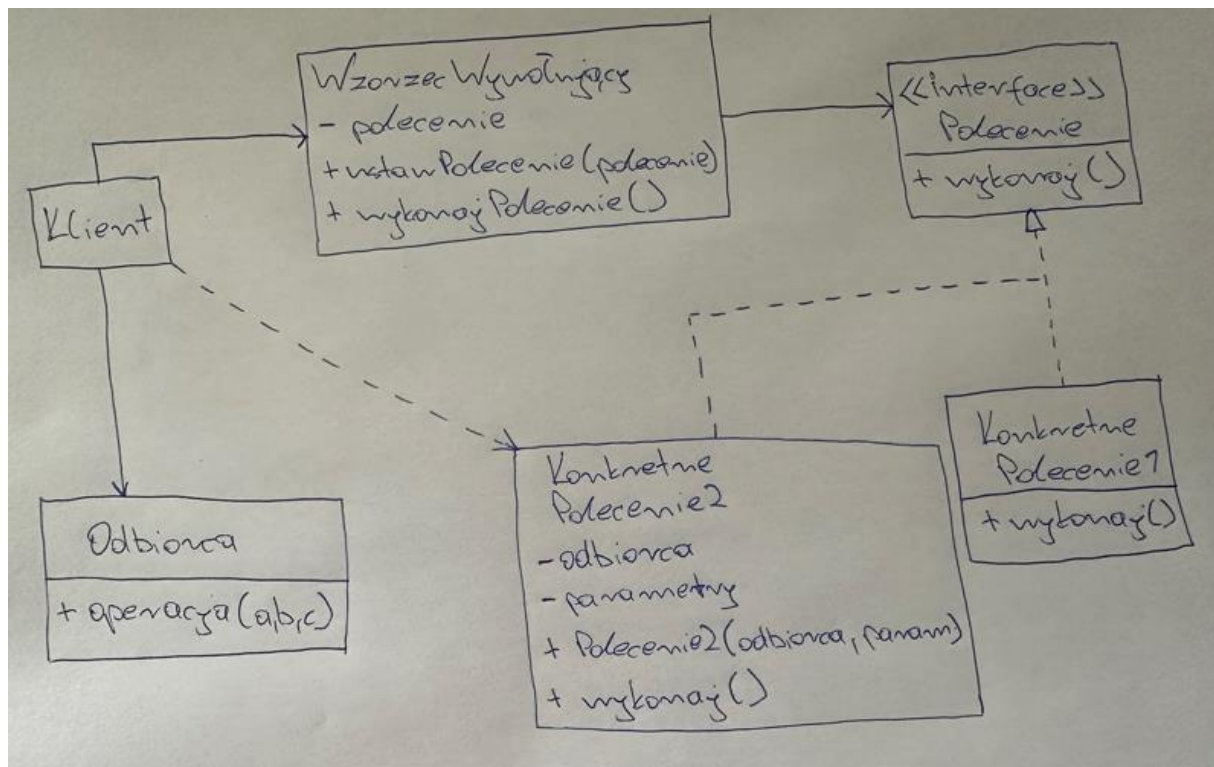 Wzorzec Wywołujący
- polecenie
+ ustawPolecenie(polecenie)
+ wykonajPolecenie()
<<interface>>
Polecenie
+ wykonaj()
Klient
Odbiorca
+ operacja(a,b,c)
Konkretne
Polecenie2
- odbiorca
- parametry
+ Polecenie2(odbiorca, param)
+ wykonaj()
Konkretne
Polecenie1
+ wykonaj()